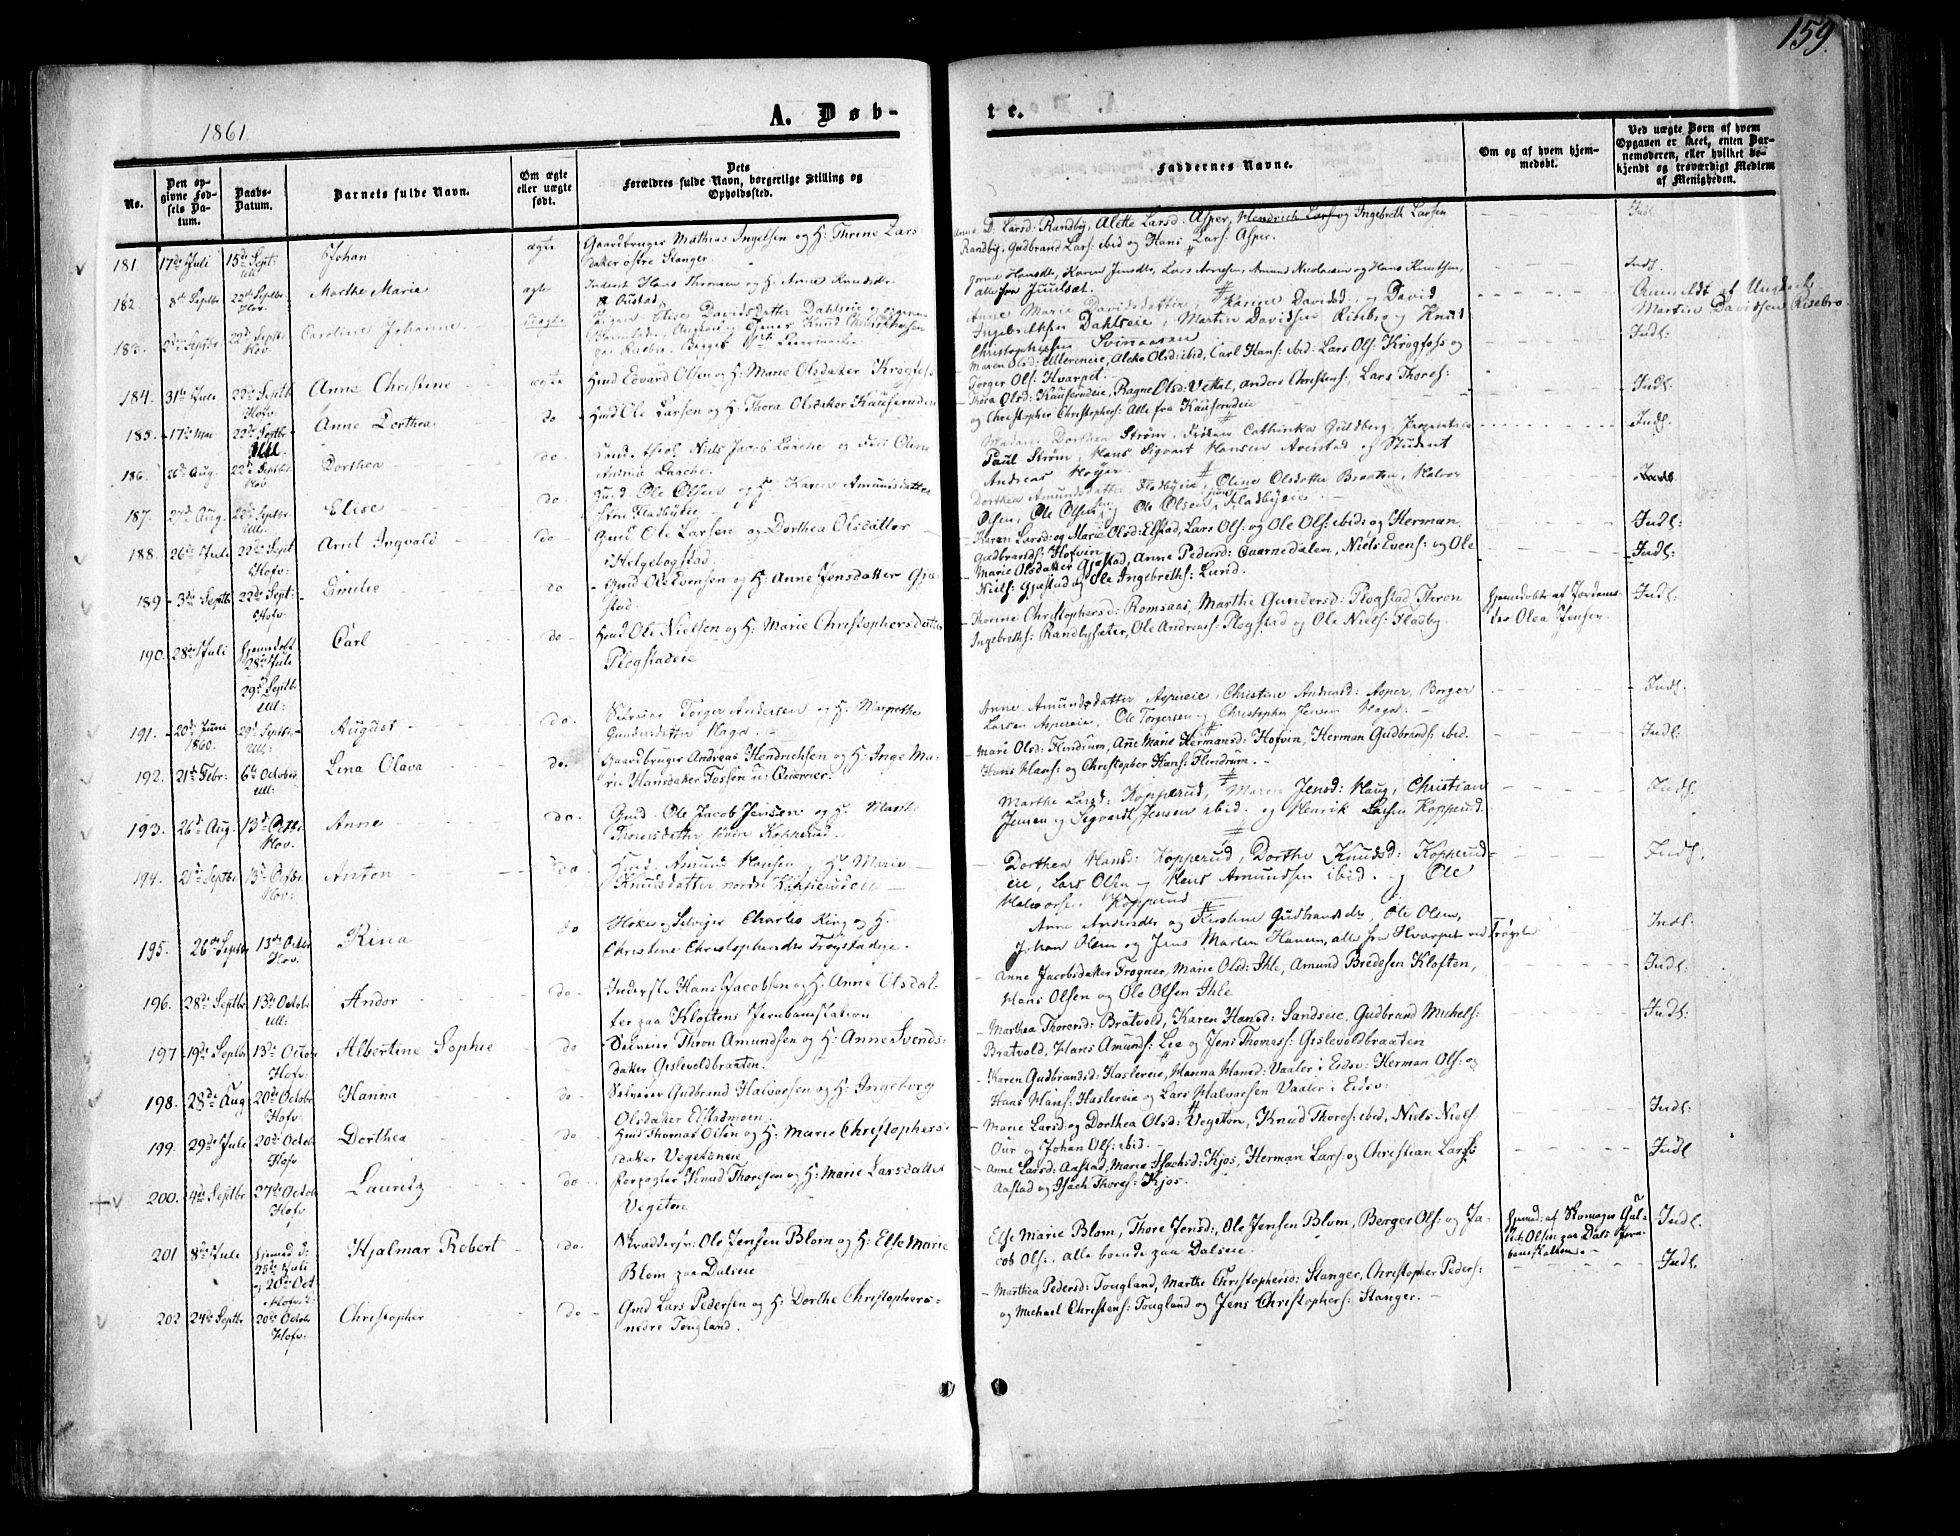 159.
1861.
A. Døb-
te.
No.
Den op-
givne Fød-
sels Da-
tum.
Daabs-
Datum.
Barnets fulde Navn.
Om ægte
eller uægte
født.
Dets
Forældres fulde Navn, borgerlige Stilling og
Opholdssted.
Faddernes Navne.
Om og af hvem hjem-
medøbt.
Ved uægte Børn af hvem
Opgaven er skeet, enten Bar-
nemoderen, eller hvilket be-
kjendt og troværdigt Medlem
af Menigheden.
181. 17de Juli 15de Sept: Ull: Johan ægte
Gaardbruger Mathias Ingelsen og H: Thrine Lars
datter østre Stanger.
Anne D. Larsd: Randby, Alette Larsd: Asper, Hendrich Lars: og Ingebreth Larsen
Randby, Gudbrand Lars: ibid og Hans Lars: Asper.
Indl
182. 8de Septbr 22de Septbr Hov. Marthe Marie ægte
Inderst Hans Thronsen og H: Anne Knudsdtr
Karen Jensdt, Lars Arnesen, Amund Nicolaisen og Hans Knudsen,
alle fra Juulsæt.
Indl.
183. 22de Septbr Hov. Caroline Johanne uægte
Pigen Elise Davidsdatter Dahleie og
Knud Christophersen
Anne Marie Davidsdatter, Karine Davidsd. og David
Ingebrigtsen Dahleie, Martin Davidsen Risebro og Knud
Christophersen
Anmeldt af
Martin Davidsen Risebro
Indl:
184. 31te Juli 22de Septb Hofv: Anne Christine ægte
Hmd Edvard Olsen og H: Marie Olsdatter Krogfoss
Carl Hans: ibid: Lars Ols: Krogfoss og
Torger Ols: Hvarpet.
Indl.
185. 17de Mai 22de Septbr Ull Anne Dorthea do
Hmd Ole Larsen og H: Thora Olsdatter Kauserudeie
Thora Olsd: Kauserudeie, Ragne Olsd: Vettal, Anders Christens: Lars Thores:
og Christopher Christophers: Alle fra Kauserudeie
Indl.
186. 26de Aug. 22de Septbr Hov. Dorthea do.
Cand. theol. Niels Jacob Laache og Fru Oline
Laache.
Madam Dorthea Strøm, Frøken Cathinka Guldberg, Proprietær
Paul Strøm, Hans Sigvart Hansen Aurstad og Student
Andreas Høyer.
Indl:
187. 27de Aug. 22de Septbr Ull: Elise do
Ole Olsen og H. Karen Amundsdatter
Dorthea Amundsdatter Fladbyeie, Oline Olsdatter Braaten, Halvor
Olsen, Ole Olsen, Ole Olsen, Fladbyeie.
Indl:
188. 26de Juli 22de Sept Hofv: Arnt Ingvald do
Gmd Ole Larsen og Dorthea Olsdatter
i Helgebogstad.
Karen Larsd: og Marie Olsd: Elstad, Lars Ols: og Ole Ols: ibid: og Herman
Gudbrands: Hofvin.
Indl:
189 3de Septbr 22de Sept: Hofv: Emilie do
Gmd Ole Evensen og H: Anne Jensdatter Gja-
stad.
Marie Olsdatter Gjæstad, Anne Pedersd: Qvarnedalen, Niels Evens: og Ole
Niels: Gjæstad og Ole Ingebreths: Lund.
Indl:
190. 28de Juli Hjemdøbt 28de Juli 29de Septbr Ull: Carl do
Hmd Ole Nielsen og H: Marie Christophersdatter
Plogstadeie
Thorine Christophersd: Romsaas, Marthe Gundersd: Plogstad, Thron
Ingebreths: Randbysæter, Ole Andreas: Plogstad og Ole Niels: Fladby.
Hjemdøbt af Jordemo-
der Olea Jensen.
Indl:
191. 20de Juni 1860. 29de Septbr Ull: August do.
Selveier Torger Andersen og H. Marthe
Gundersdatter Haga.
Anne Amundsdatter Aspereie, Christine Andreasd: Asper, Borger
Larsen Aspereie, Ole Torgersen og Christopher Jensen Haga.
Indl.
192. 21de Febr: 6te October Ull: Lina Olava do.
Gaardbruger Andreas Hendrichsen og H: Inge Ma-
rie Hansdatter Fossen u: Qværner.
Marie Olsd: Flindrum, Ane Marie Hermansd: Hofvin, Herman Gudbrands: ibid.
Hans Hans: og Christopher Hans: Flindrum.
Indl:
193. 26de Aug. 13de Octbr Hov. Anne do.
Gmd. Ole Jacob Jensen og H. Marthe
Thoresdatter, Kopperud.
Marthe Larsd: Kopperud, Maren Jensd: Haug, Christian
Jensen og Sigvardt Jensen ibid. og Henrik Larsen Kopperud.
Indl.
194. 21de Septbr 13de Octbr Hov: Anton do.
Amund Hansen og H. Marie
Knudsdatter nordre Kopperud
Dorthea Hansd: Kopperud, Dorthe Knudsd: Kopperud-
eie, Lars Olsen og Hans Amundsen ibid. og Ole
Halvors. Kopperud
Indl.
195. 26de Septbr 13de Octbr Hov. Rina do
Høker og Selveier Charles King og H.
Christine Christophersdtr Trøgstadeie.
Anne Andersdtr og Kirstine Gudbrandsdtr, Ole Olsen,
Johan Olsen og Jens Martin Hansen, alle fra Hvarpet ved Trøgst.
Indl
196. 28de Septbr 13de Octobr Ull: Andor do
Inderste Hans Jacobsen og H: Anne Olsdat-
ter paa Kløftens Jernbanestation
Anne Jacobsdatter Frogner, Marie Olsd: Ihle, Amund Bredesen Kløften,
Hans Olsen og Ole Olsen Ihle
Indl:
197 19de Septbr 13de Octobr Hofv: Albertine Sophie do
Selveier Thron Amundsen og H: Anne Svends-
datter Gislevoldbraaten.
Marthea Thoresd: Bratvold, Karen Hansd: Sandseie, Gudbrand Michels:
Bratvold, Hans Amunds: Lie og Jens Thomas: Gislevoldbraaten
Indl:
198. 28de Aug 20de Octobr Hofv: Hanna do.
Selveier Gudbrand Halvorsen og H: Ingeborg
Olsdatter Elstadmoen.
Karen Gudbrandsd: Haslereie, Hanna Hansd: Vaaler i Eidsv: Herman Ols: og
Hans Hans: Haslereie og Lars Halvorsen Vaaler i Eidsv:
Indl:
199. 29de Juli 20de October Hofv Dorthea do
Hmd Thomas Olsen og H: Marie Christophers-
datter Vegetoneie
Marie Larsd: og Dorthea Olsd: Vegeton, Knud Thores: ibid, Niels Niels
Our og Johan Ols: ibid.
Indl
200. 4de Septbr 27de October Hofv Lauritz do
Forpagter Knud Thoresen og H: Marie Larsdatter
Vegeton
Anne Larsd: Aastad, Marie Isachsd: Kjos, Herman Lars: og Christian Lars:
Aastad og Isach Thores: Kjos.
201 8de Juli Hjemd d: 25de Juli og 20de Oct Hofv: Hjalmar Robert do.
Skrædersv: Ole Jensen Blom og H: Else Marie
Blom paa Dalseie
Else Marie Blom, Thore Jensd:, Ole Jensen Blom, Berger Ols: og Ja-
cob Ols:, alle boende paa Dalseie.
Hjemd: af Skomager Gul-
lick Olsen paa Dals Jern-
banestation.
Indl.
202 24de Septbr 20de Octobr Hofv: Christopher do
Gmd Lars Pedersen og H: Dorthe Christophers-
nedre Tougland.
Marthea Pedersd: Tougland, Marthe Christophersd: Stanger, Christopher Peders:
og Michael Christens: Tougland og Jens Christophers: Stanger.
Indl.